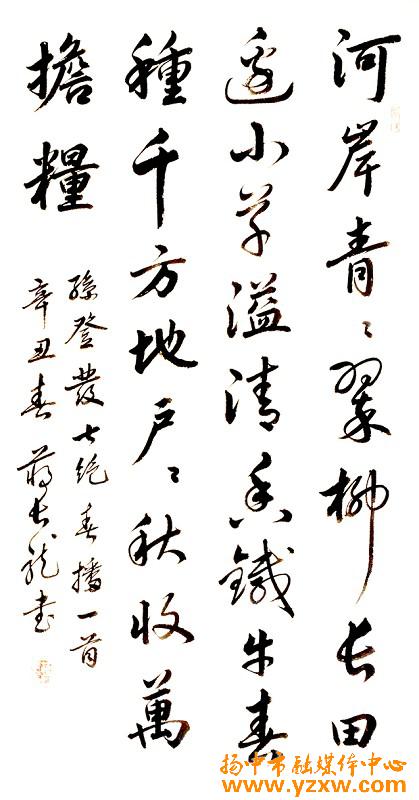 河岸青〻翠柳長田
邊小草溢清香鐵牛春
種千方地戶〻秋收萬
擔糧
孫登發七絕春播一首
辛丑春蔣長龍書
扬中市融媒体中心
www.yzxw.com